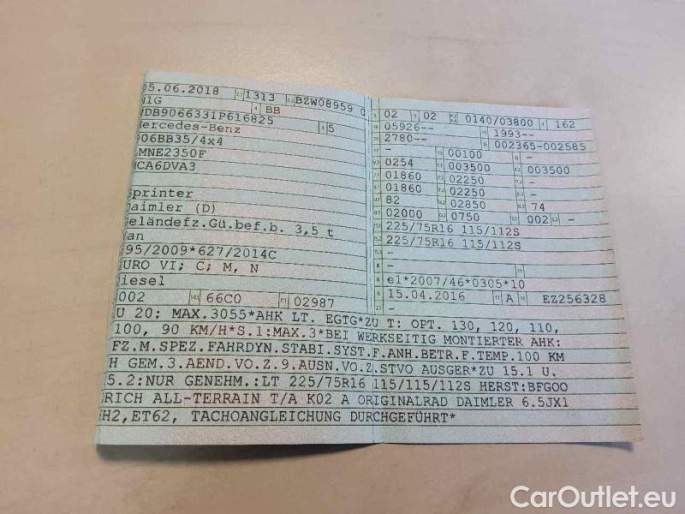 05.06.2018 1313 BZW08959 0
01G BB
WDB9066331P616825
Mercedes-Benz 5
906BB35/4x4
MNE2350F
CA6DVA3
Sprinter
Daimler (D)
Geländefz.Gü.bef.b. 3,5 t
Van
595/2009*627/2014C
EURO VI; C; M, N
Diesel
0002 66C0 02987
02 02 0140/03800 162
05926-- 1993--
2780-- 002365-002585
- 00100 -
0254 003500 003500
01860 02250 -
01860 02250 -
82 02850 74
02000 0750 002 -
225/75R16 115/112S
225/75R16 115/112S
-
-
e1*2007/46*0305*10
15.04.2016 A EZ256328
U 20: MAX.3055*AHK LT. EGTG*ZU T: OPT. 130, 120, 110,
100, 90 KM/H*S.1:MAX.3*BEI WERKSEITIG MONTIERTER AHK:
FZ.M.SPEZ.FAHRDYN.STABI.SYST.F.ANH.BETR.F.TEMP.100 KM
H GEM.3.AEND.VO.Z.9.AUSN.VO.Z.STVO AUSGER*ZU 15.1 U.
5.2:NUR GENEHM.:LT 225/75R16 115/115/112S HERST:BFGOO
RICH ALL-TERRAIN T/A K02 A ORIGINALRAD DAIMLER 6.5JX1
H2,ET62, TACHOANGLEICHUNG DURCHGEFÜHRT*
CarOutlet.eu